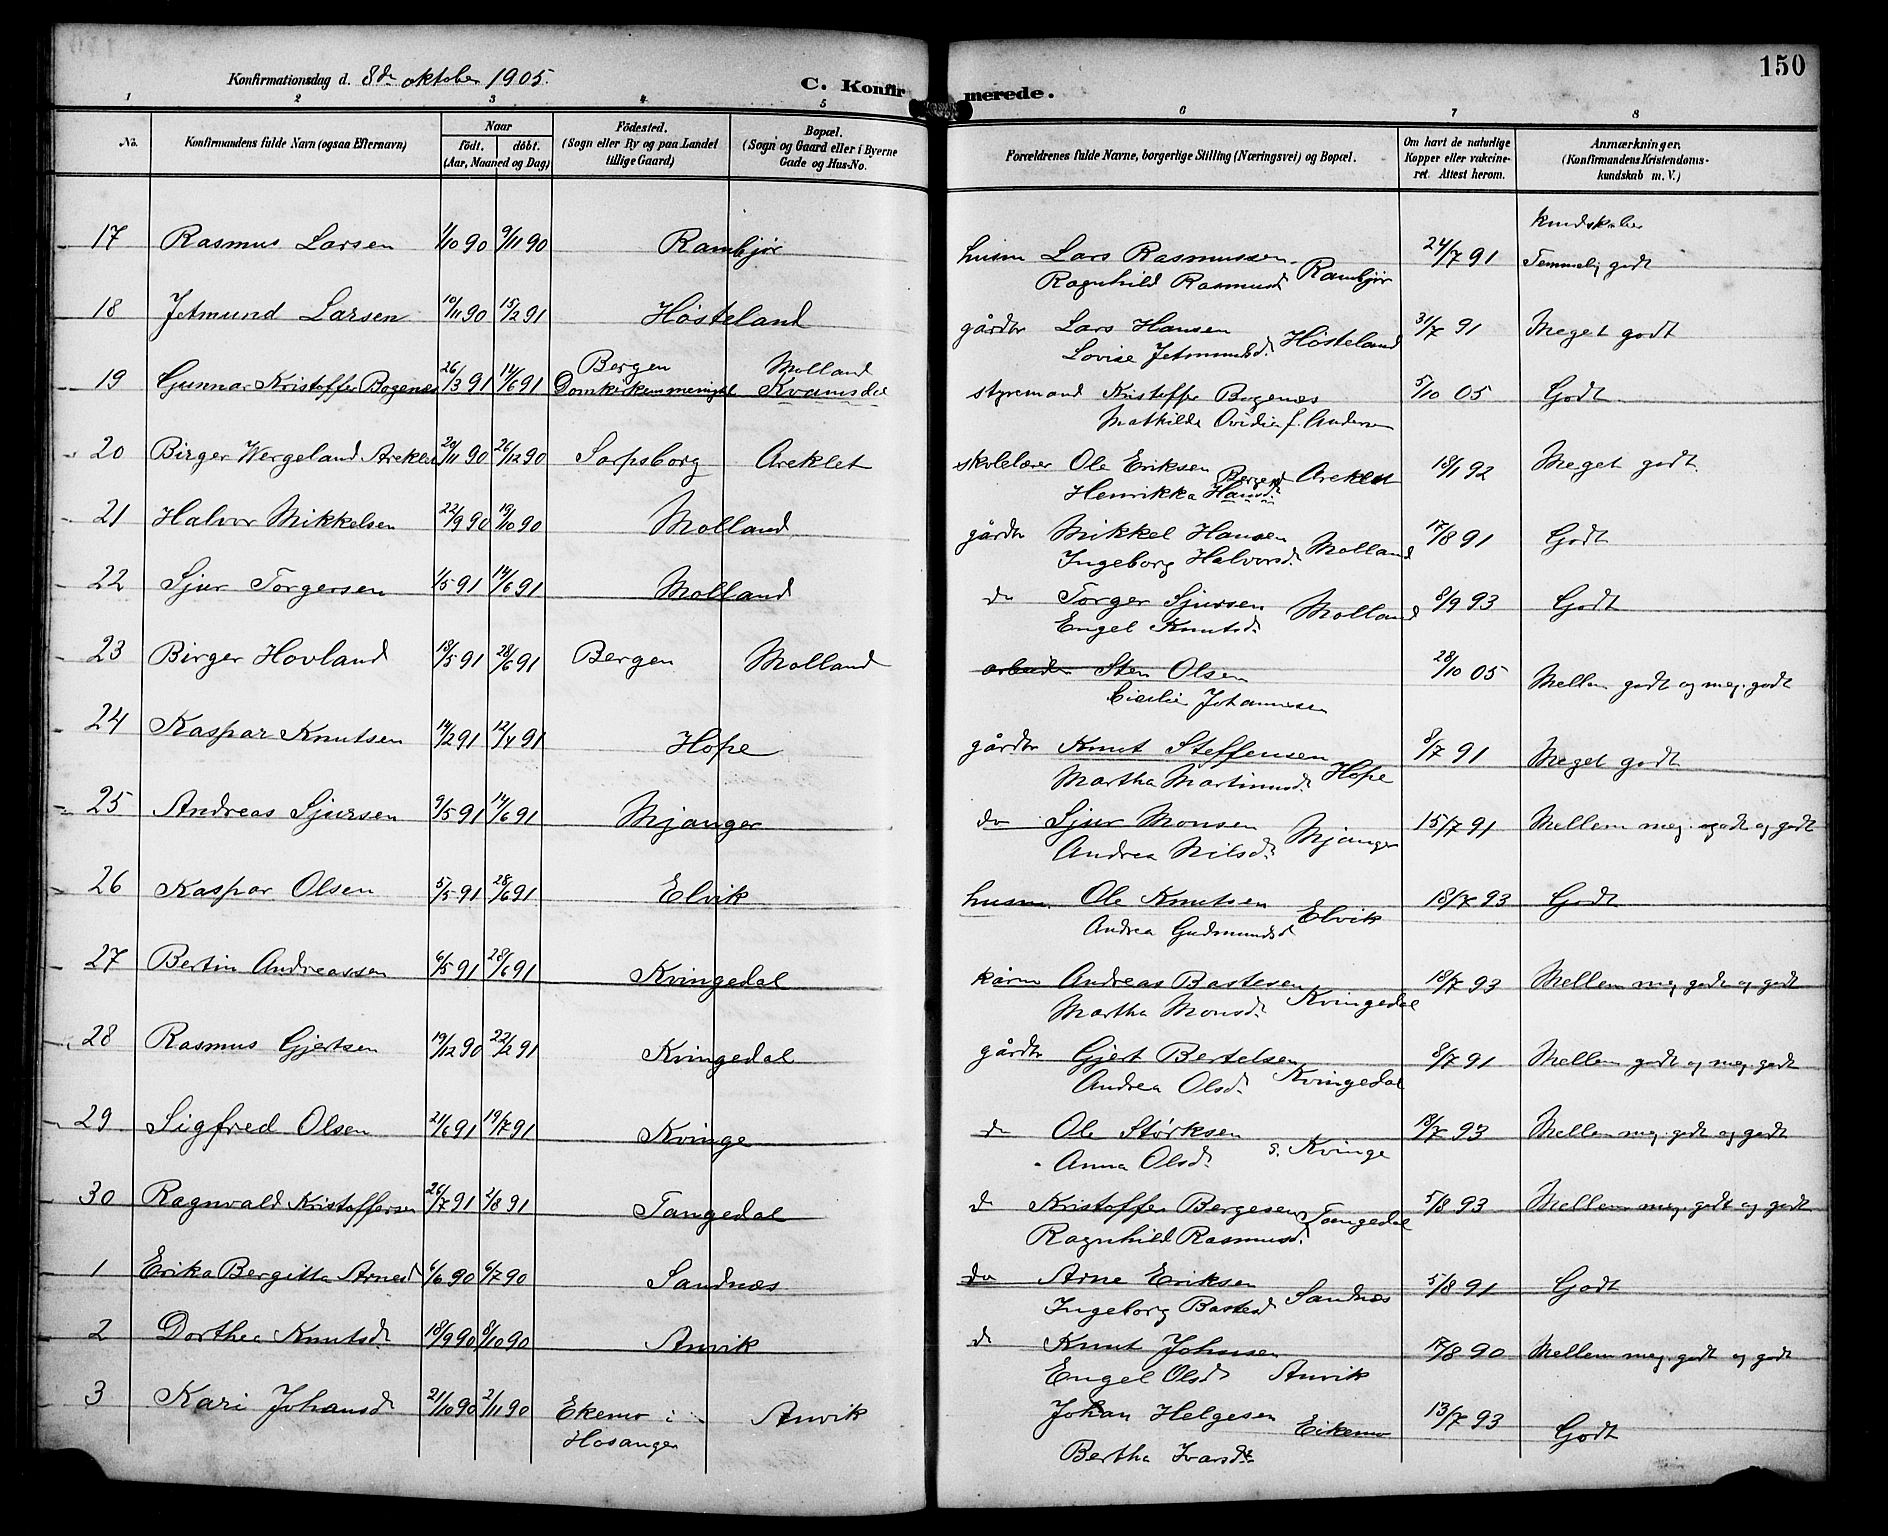 150
Konfirmationsdag d. 8de oktober 1905.
C. Konfirmerede.
1 2 3 4 5 6 7 8
No. Konfirmandens fulde Navn (ogsaa Efternavn) Naar født. døbt. (Aar, Maaned og Dag) Fødested. (Sogn eller By og paa Landet tillige Gaard) Bopæl. (Sogn og Gaard eller i Byerne Gade og Hus-No. Forældrenes fulde Navne, borgerlige Stilling (Næringsvei) og Bopæl. Om havt de naturlige Kopper eller vakcineret. Attest herom. Anmærkninger. (Konfirmandens Kristendomskundskab m. V.)
Kundskaber
17 Rasmus Larsen 1/10 90 9/11 90 Rambjør husm Lars Rasmussen Rambjør 24/7 91 Temmelig godt
Ragnhild Rasmusd
18 Jetmund Larsen 10/11 90 15/2 91 Høsteland gårdbr Lars Hansen Høsteland 31/7 91 Meget godt
Lovise Jetmundsd.
19 Gunnar Kristoffer Bogenæs 26/3 91 14/6 91 Bergen Domkirkemenighet Molland Kvamsdal styrmand Kristoffer Bogenæs 5/10 05 Godt
Mathilde Ovidia f. Andersen
20 Birger Wergeland Areklet 20/11 90 26/12 90 Sarpsborg Areklet skolelærer Ole Eriksen Areklet 18/1 92 Meget godt
Henrikka Hansd. Berge
21 Halvor Mikkelsen 22/9 90 19/10 90 Molland gårdbr Mikkel Hansen Molland 17/8 91 Godt
Ingeborg Halvorsd.
22 Sjur Torgersen 1/5 91 14/6 91 Molland do Torger Sjursen Molland 8/9 93 Godt
Engel Knutsd.
23 Birger Hovland 18/5 91 28/6 91 Bergen Molland arbeider Sten Olsen 28/10 05 Mellem godt og meg. godt
Cicilie Johannesen
24 Kaspar Knutsen 14/2 91 12/4 91 Hope gårdbr Knut Steffensen Hope 8/7 91 Meget godt
Martha Martinusd.
25 Andreas Sjursen 9/5 91 14/6 91 Mjanger do Sjur Monsen Mjanger 15/7 91 Mellem meg. godt og godt
Andrea Nilsd.
26 Kaspar Olsen 5/5 91 28/6 91 Elvik husm. Ole Knutsen Elvik 18/7 93 Godt
Andrea Gudmundsd
27 Bertin Andreassen 6/5 91 28/6 91 Kvingedal kårm Andreas Bastesen Kvingedal 18/7 93 Mellem meg. godt og godt
Martha Monsd.
28 Rasmus Gjertsen 19/12 90 22/2 91 Kvingedal gårdbr Gjert Bertelsen Kvingedal 8/7 91 Mellem godt og meg. godt
Andrea Olsd.
29 Sigfred Olsen 21/6 91 19/7 91 Kvinge do Ole Størksen Kvinge 18/7 93 Mellem meg. godt og godt
Anna Olsd.
30 Ragnvald Kristoffersen 26/7 91 2/8 91 Tangedal do Kristoffer Bergesen Tangedal 5/8 93 Mellem meg. godt og godt
Ragnhild Rasmusd.
1 Erika Bergitta Arnesd 6/6 90 6/7 90 Sandnæs do Arne Eriksen Sandnæs 5/8 91 Godt
Ingeborg Bastesd
2 Dorthea Knutsd. 18/9 90 8/10 90 Anvik do Knut Johnsen 17/8 90 Mellem meg. godt og godt
Engel Olsd. Anvik
3 Kari Johansd. 21/10 90 2/11 90 Ekemo i Hosanger Anvik Johan Helgesen Eikemo 13/7 93 Godt
Bertha Ivarsd.